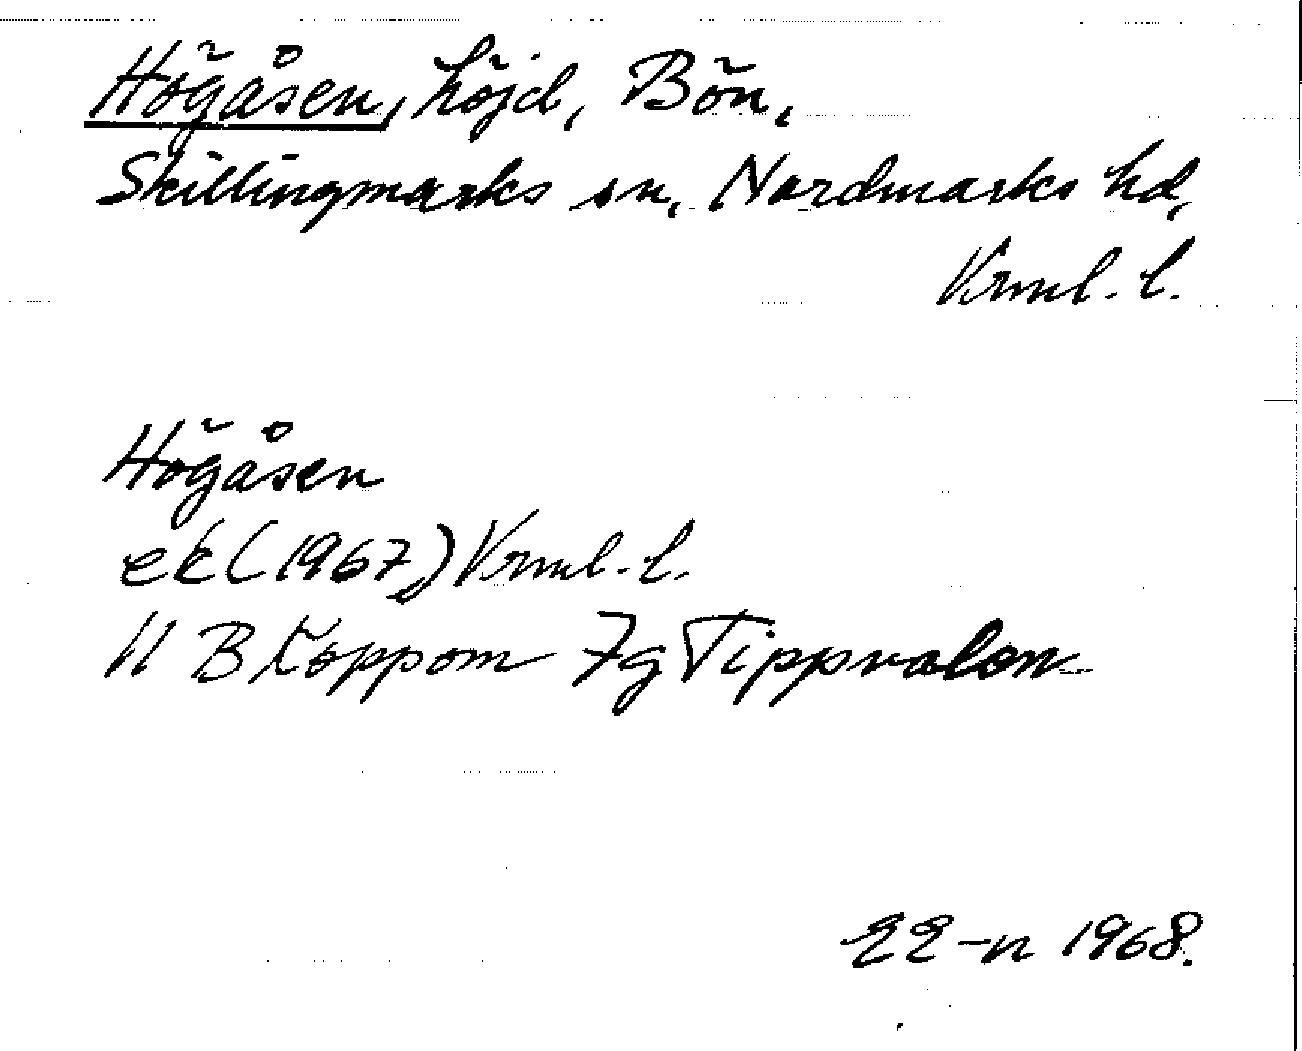 Högåsen, höjd, Bön,
Skillingmarks sn, Nordmarks hd,
Vrml. l.
Högåsen
ek (1967) Vrml. l.
11 B Koppom 7g Tippvalen
EE-n 1968.